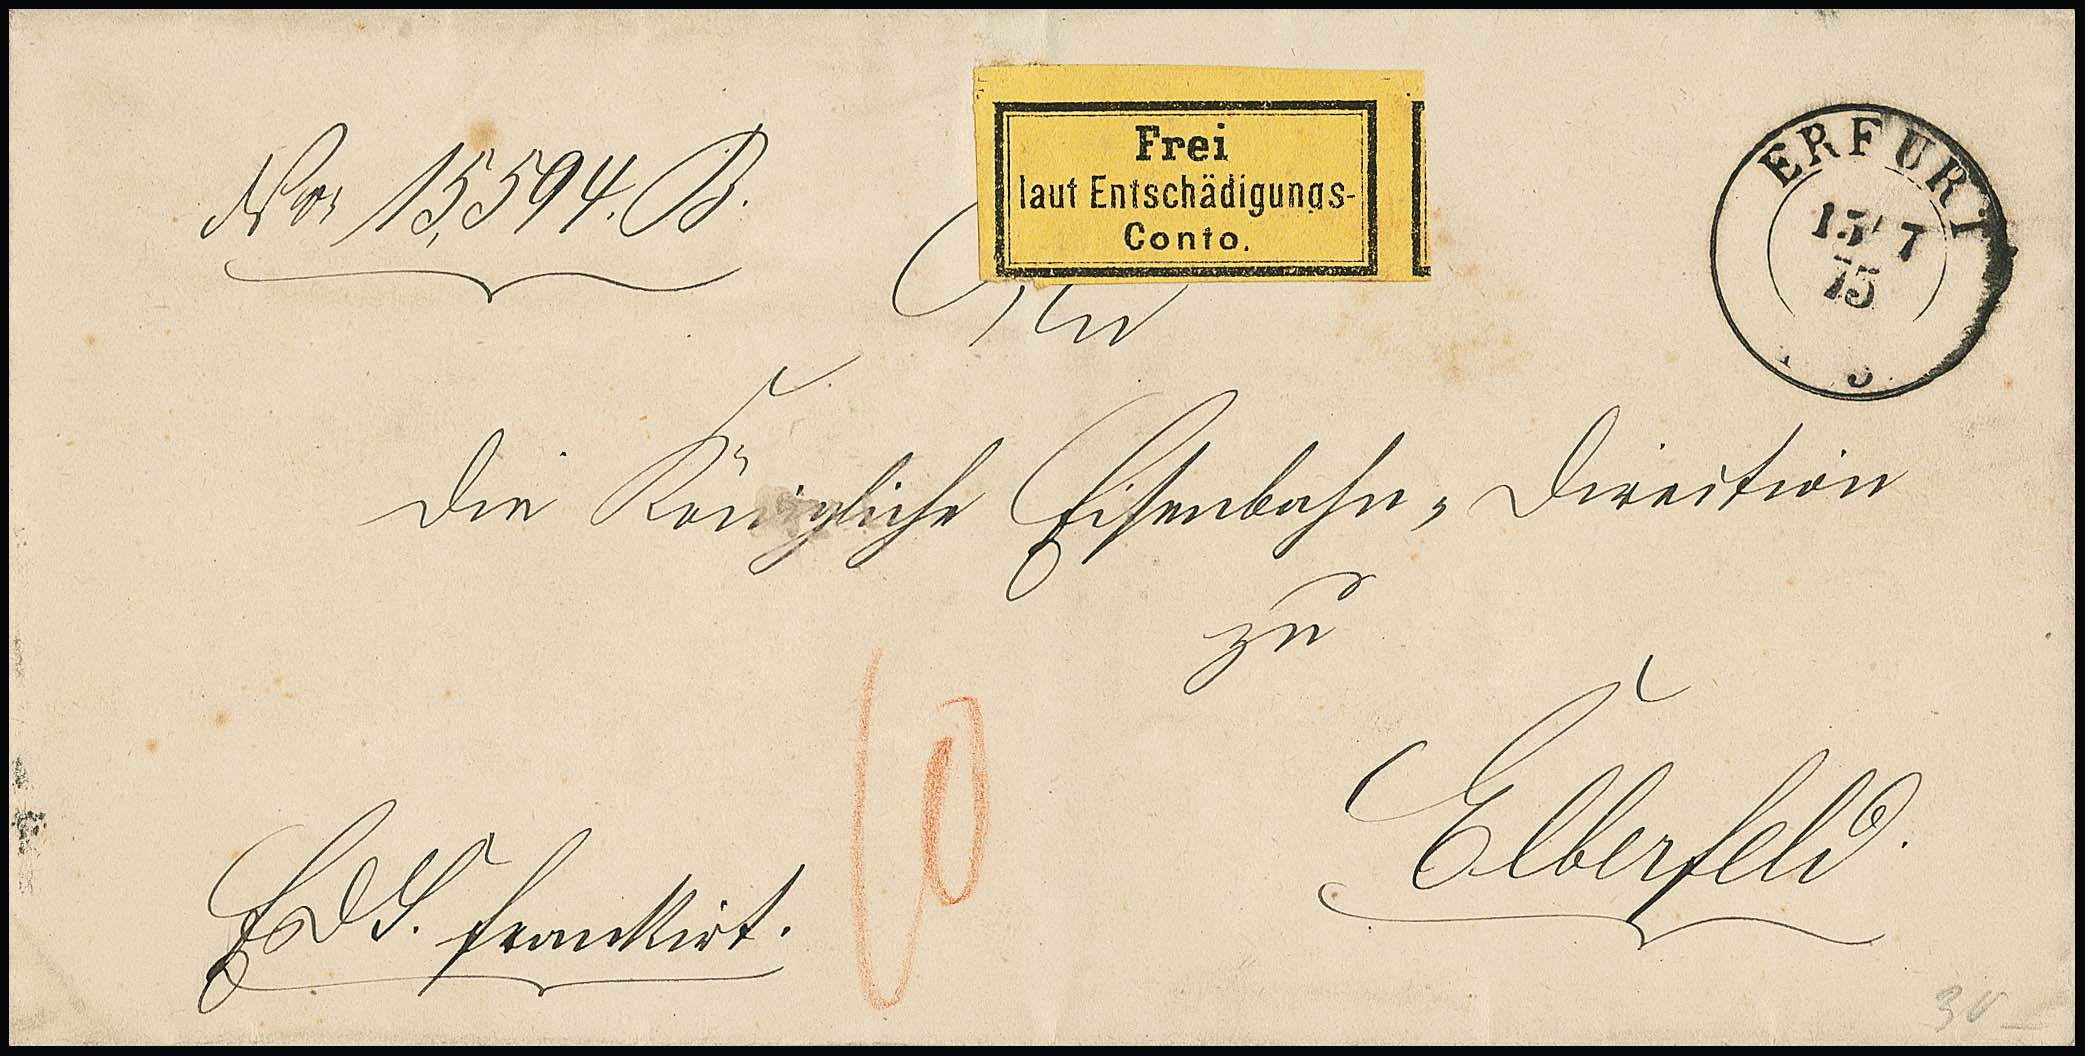 No. 15,594. B.
Frei
laut Entschädigungs-
Conto.
ERFURT
15/7
75
An
die Königliche Eisenbahn-Direction
zu
Elberfeld.
frankirt.